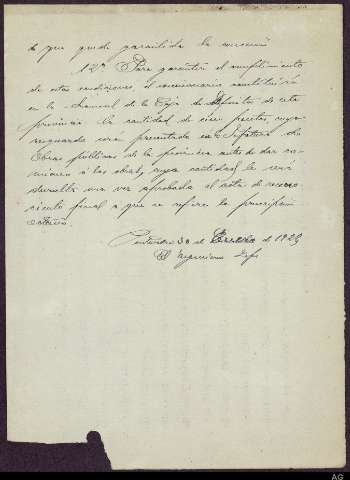 de que quede garantida la
12ª Para garantir el cumplimiento
de estas condiciones, el concesionario constituirá
en la Sucursal de la Caja de Depósitos de esta
provincia la cantidad de cien pesetas, cuyo
resguardo será presentado en la Jefatura de
Obras públicas de la provincia antes de dar co-
mienzo á las obras, cuya cantidad le será
devuelta una vez aprobada el acta de recono-
cimiento final a que se refiere la prescripción
anterior.
Pontevedra 30 de Enero de 1929
El Ingeniero Jefe
AG